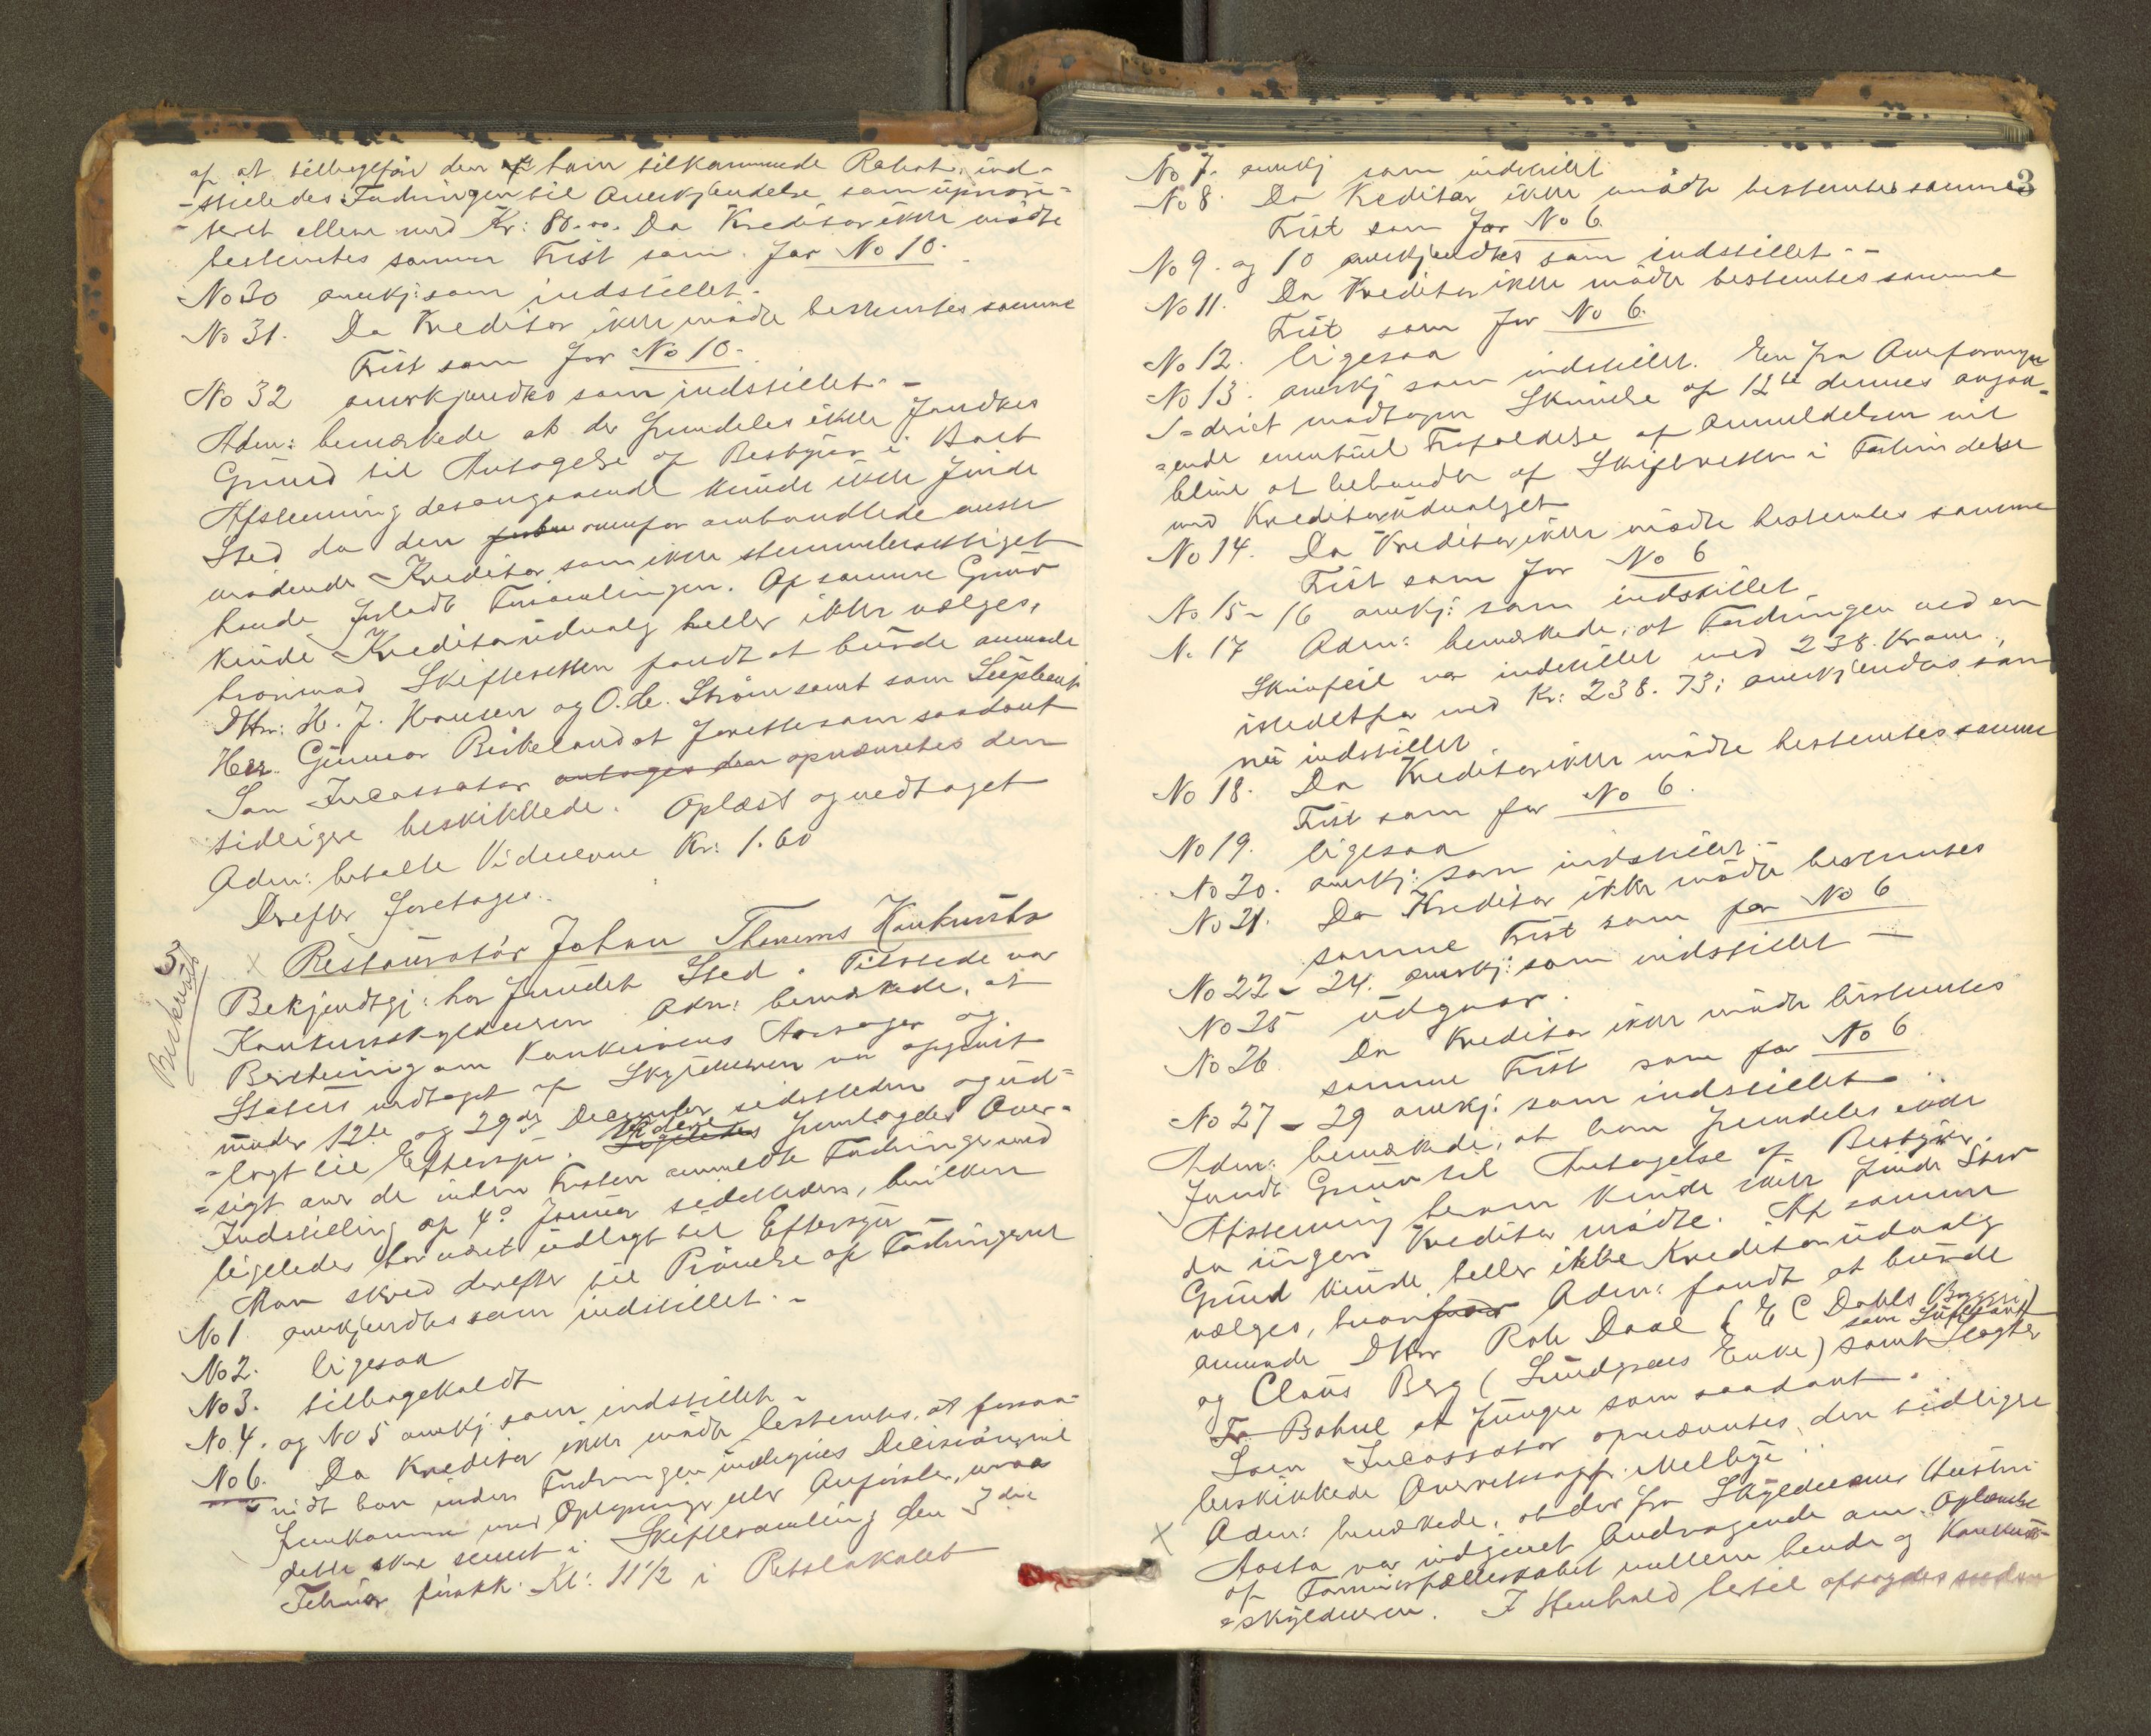 af at tilbageføre den af ham tilkommende Rabat, ind-
-stilledes Fordringen til Anerkjendelse som uprori-
-teret alene med Kr: 80.00. Da Kreditor ikke mødte
bestemtes samme Frist som for No 10.
No 30 anerkj: som indstillet.
No 31. Da Kreditor ikke mødte bestemtes samme
Frist som for No 10.
No 32 anerkjendtes som indstillet. -
Adm: bemærkede at der fremdeles ikke fandtes
Grund til Antagelse af Bestyrer i Boet
Afstemning desangaaende kunde ikke finde
Sted da den ovenfor omhandlede eneste
mødende Kreditor som ikke stemmeberettiget
havde forladt Forsamlingen. Af samme Grund
kunde Kreditorudvalg heller ikke vælges,
hvorimod Skifteretten fandt at burde anmode
DHrr: H. J. Hansen og O. H. Strøm samt som Supleant
Herr Gunnar Birkeland at forrette som saadant
Som Incassator antages den opnævntes den
tidligere beskikkede. Oplæst og vedtaget
Adm: betalte Vidnerne Kr: 1.60
Derefter foretoges..
Restauratør Johan Thorems Konkursbo
Bekjendtgj: har fundet Sted. Tilstede var
Konkursskyldneren Adm: bemærkede, at
Beretning om Konkursens Aarsager og
Status vedtaget af Skyldneren var afgivet
under 12te og 29de December sidstleden og ud-
-lagt til Eftersyn. Ligeledes Videre fremlagdes Over-
-sigt over de inden Fristen anmeldte Fordringer med
Indstilling af 4de Januar sidstleden, hvilken
ligeledes har været udlagt til Eftersyn -
Man skred derefter til Prøvelse af Fordringerne
No 1 anerkjendtes som indstillet. -
No 2. ligesaa
No 3. tilbagekaldt
No 4. og No 5 anerkj. som indstillet -
No 6. Da Kreditor ikke mødte bestemtes, at forsaa-
-vidt han inden Fordringen undergives Decision, vil
fremkomme med Oplysninger eller Anførsler, maa
dette ske senest i Skiftesamling den 3die
Februar førstk: Kl: 11 1/2 i Retslokalet
3
No 7. anerkj som indstillet
No 8. Da Kreditor ikke mødte bestemtes samme
Frist som for No 6.
No 9. og 10 anerkjendtes som indstillet. -
No 11. Da Kreditor ikke mødte bestemtes samme
Frist som for No 6.
No 12. ligesaa
No 13. anerkj som indstillet. En fra
modtagen Skrivelse af 12te dennes angaa-
-ende eventuel Frafaldelse af Anmeldelsen vil
blive at behandle af Skifteretten i Forbindelse
med Kreditorudvalget
No 14. Da Kreditor ikke mødte bestemtes samme
Frist som for No 6
No 15 - 16 anerkj: som indstillet
No 17 Adm: bemærkede, at Fordringen ved en
Skrivfeil var indstillet med 238. Kroner,
istedetfor med Kr: 238.73; anerkjendes som
nu indstillet.
No 18. Da Kreditor ikke mødte bestemtes samme
Frist som for No 6.
No 19. ligesaa
No 20. anerkj: som indstillet -
No 21. Da Kreditor ikke mødte bestemtes
samme Frist som for No 6
No 22 - 24. anerkj: som indstillet -
No 25 udgaar.
No 26 Da Kreditor ikke mødte bestemtes
samme Frist som for No 6
No 27 - 29 anerkj: som indstillet.
Adm: bemærkede, at han fremdeles ikke
fandt Grund til Antagelse af Bestyrer.
Afstemning herom kunde ikke finde Sted
da ingen Kreditor mødte. Af samme
Grund kunde heller ikke Kreditorudvalg
vælges, hvorfor Adm: fandt at burde
anmode DHrr Rob Daae (E C Dahls Bryggeri)
og Claus Berg (Lundgrens Enke) samt som Supleant Slagter
Fr Bohne at fungere som saadant.
Som Incassator opnævntes den tidligere
beskikkede Overretssagf. Melbye
Adm: bemærkede, at der fra Skyldnerens Hustru
Aasta var indgivet Andragende om Ophævelse
af Formuesfælleskabet mellem hende og Konkurs-
-skyldneren. I Henhold hertil afsagdes